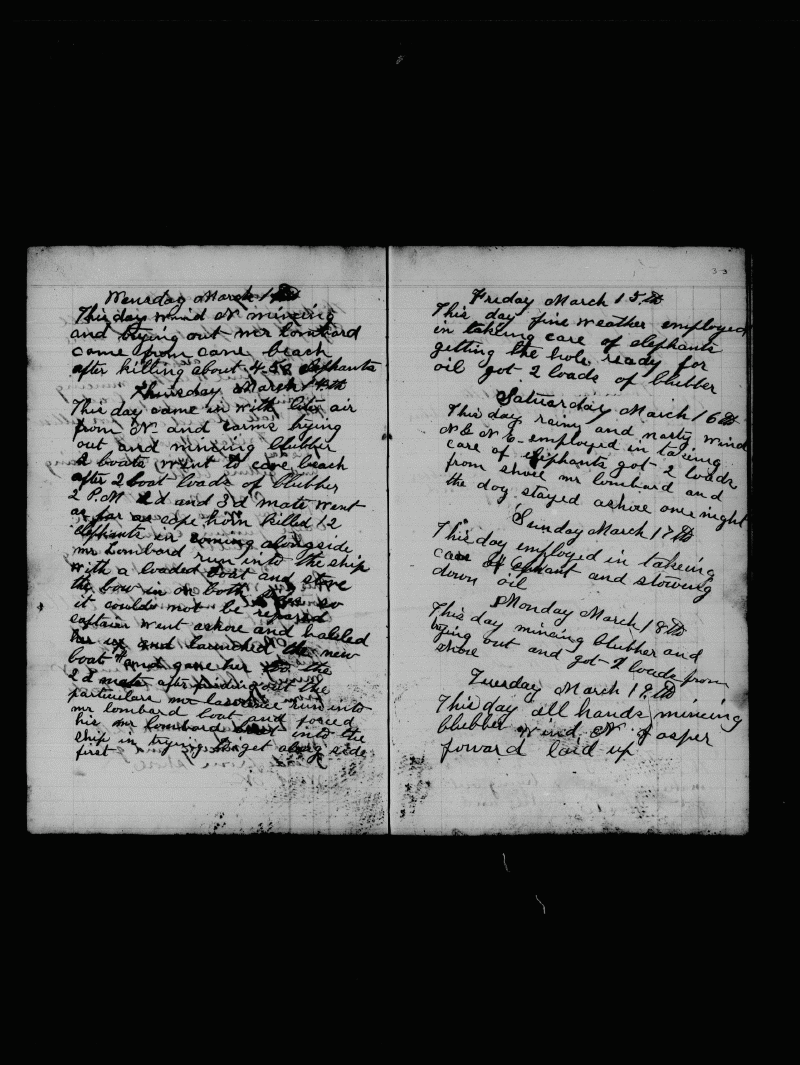 Wensday March 13th
This day wind N mincing
and trying out mr Lombard
came from cave beach
after killing about 458 elephants
Thursday March 14th
This day came in with lite air
from N and carms trying
out and mincing blubber
2 boats went to cave beach
after 2 boat loads of blubber
2 P.M 2d and 3d mate went
as far as cape horn killed 12
elephants in coming alongside
mr Lombard run into the ship
with a loaded boat and stove
the bow in on both so
it couldo not be repared
captain went ashore and haleled
her up and launched the new
boat and gave her to the
2d mate after finding out the
particulars mr lawrence run into
mr lombard boat and forced
his mr lombard boat into the
ship in trying to get along side
first
33
Friday March 15th
This day fine weather employed
in takeing care of elephants
getting the hole ready for
oil got 2 loads of blubber
Saturday March 16th
This day rainy and nasty wind
N & N E employed in takeing
care of elephants got 2 loads
from shore mr lombard and
the boy stayed ashore one night
Sunday March 17th
This day employed in takeing
care of and stowing
down oil
Monday March 18th
This day mincing blubber and
trying out and got 2 loads from
shore
Tuesday March 19th
This day all hands mincing
blubber wind N
foward laid up